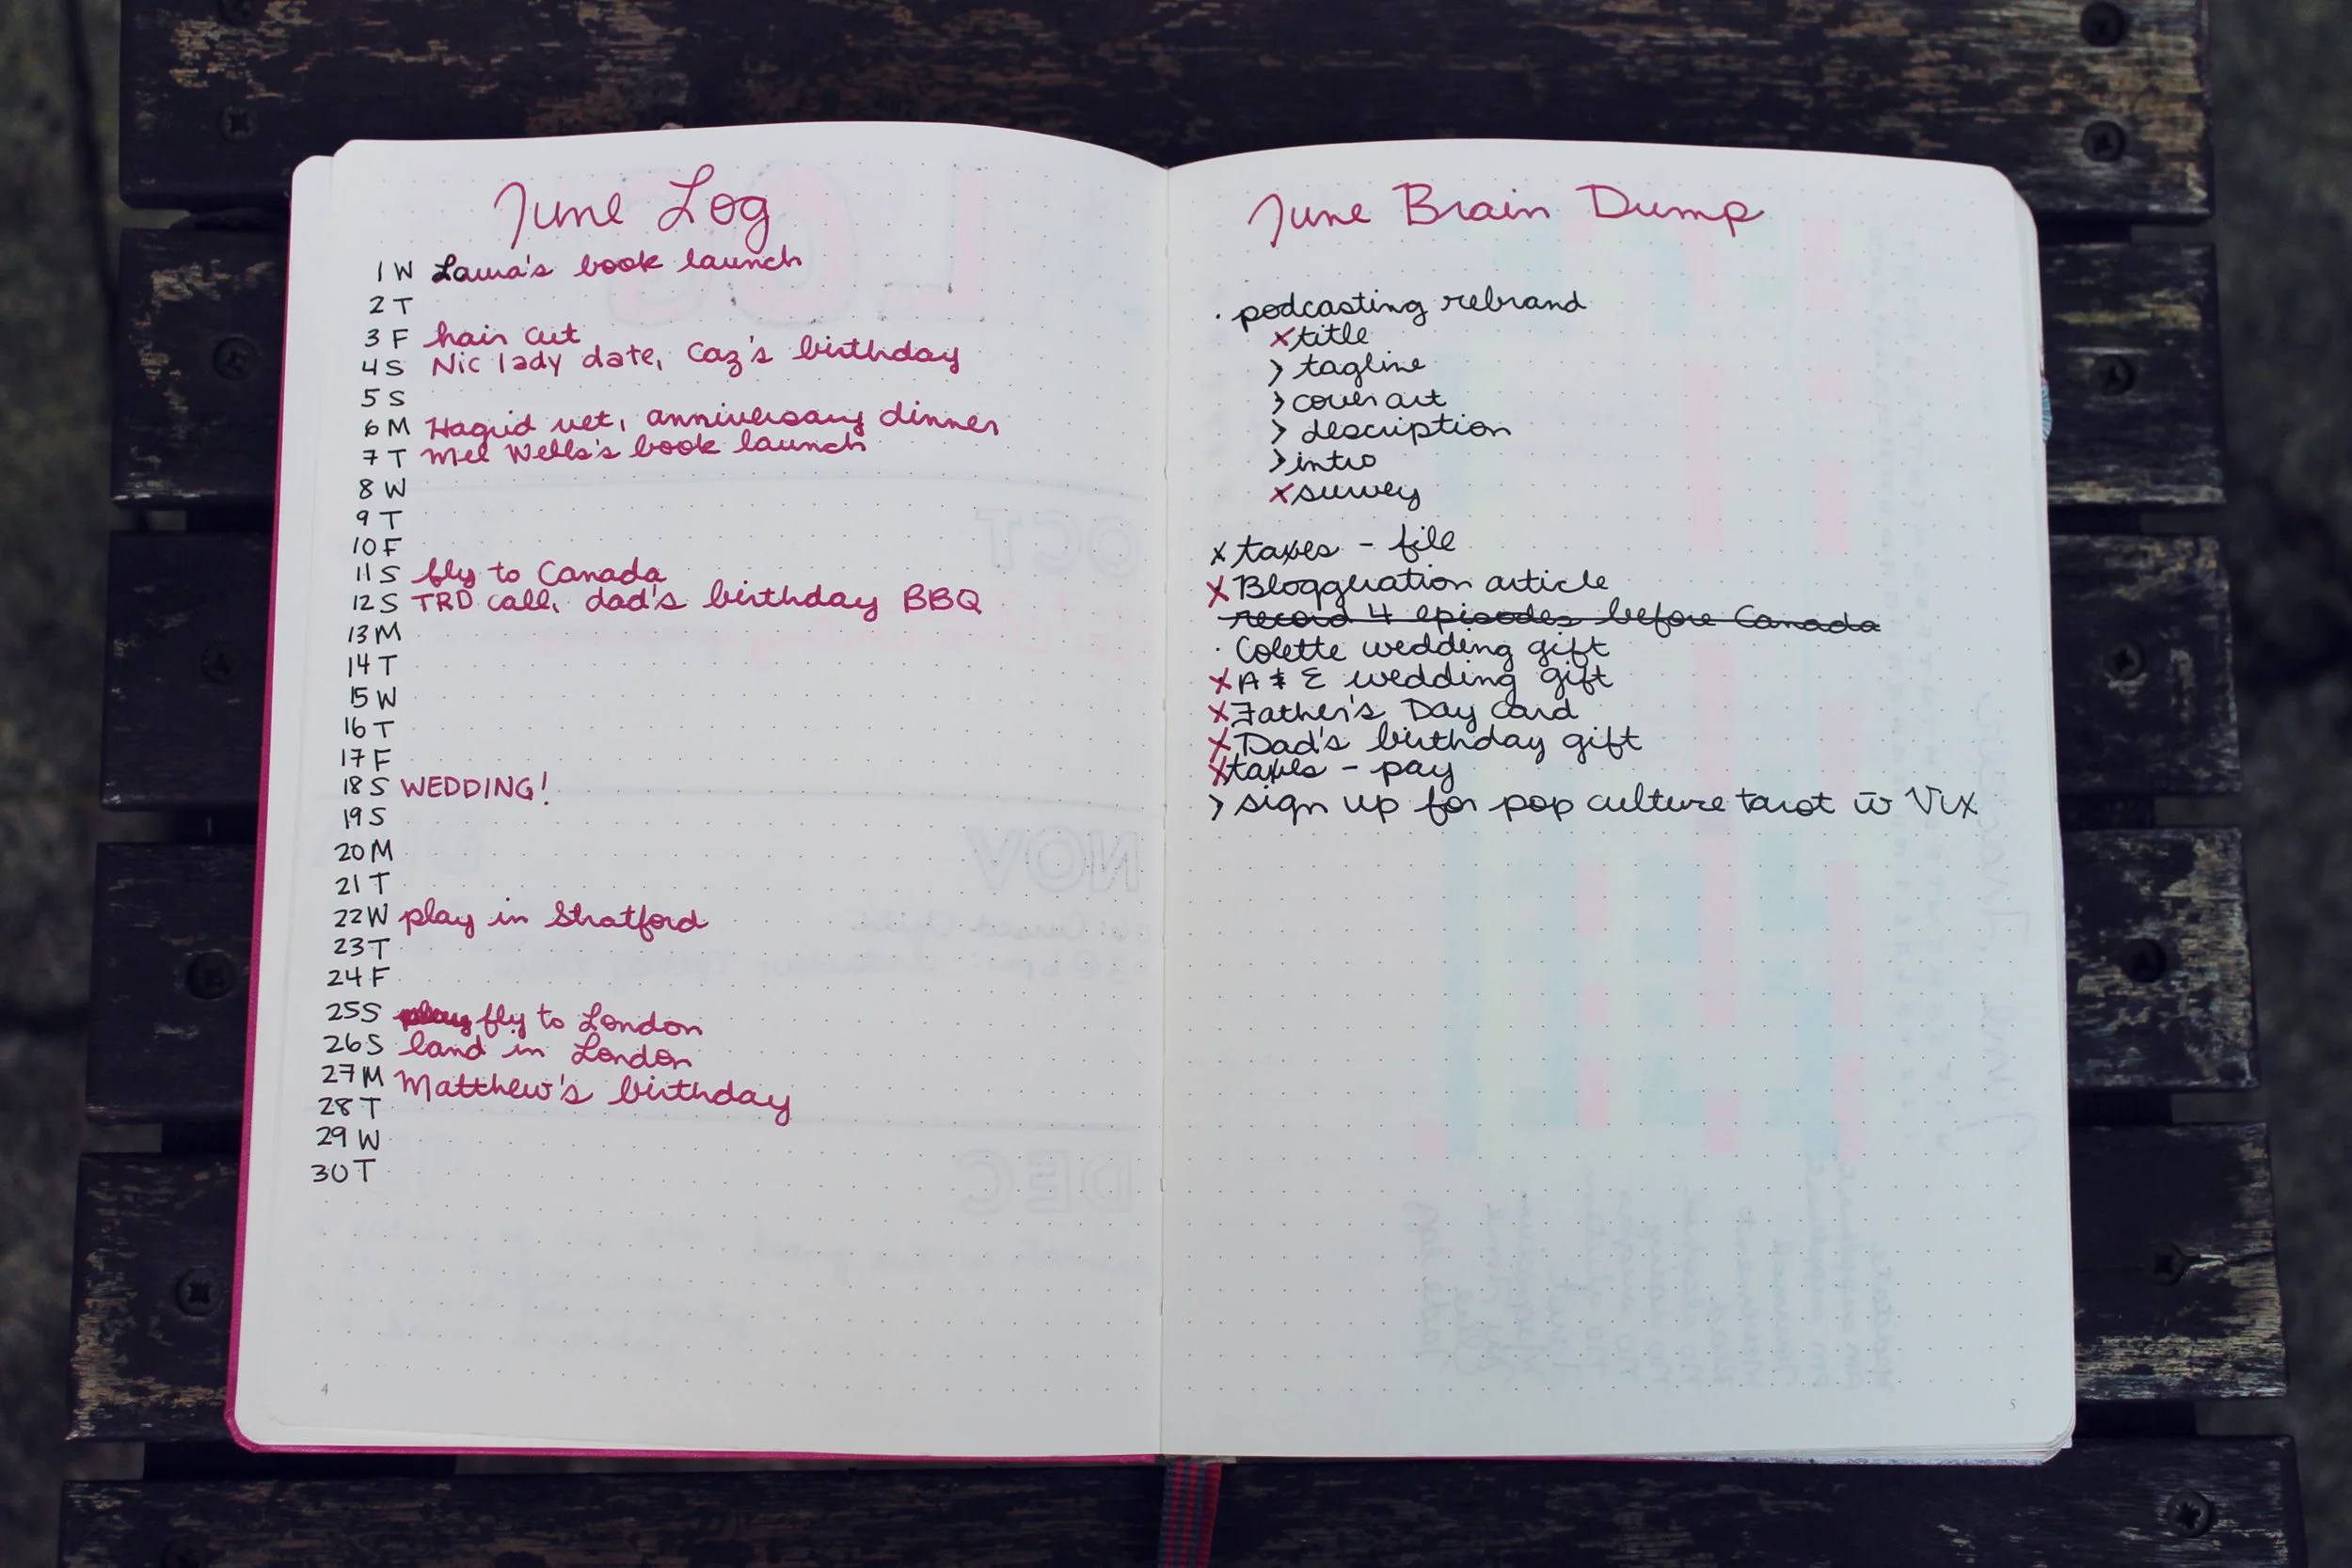 June Log
1 W Laura's book launch
2 T
3 F hair cut
4 S Nic lady date, Caz's birthday
5 S
6 M Hagrid vet, anniversary dinner
7 T Mel Wells's book launch
8 W
9 T
10 F
11 S fly to Canada
12 S TRD call, dad's birthday BBQ
13 M
14 T
15 W
16 T
17 F
18 S WEDDING!
19 S
20 M
21 T
22 W play in Stratford
23 T
24 F
25 S fly to London
26 S land in London
27 M Matthew's birthday
28 T
29 W
30 T
4
June Brain Dump
· podcasting rebrand
x title
> tagline
> cover art
> description
> intro
x survey
x taxes - file
x Bloggeration article
record 4 episodes before Canada
· Colette wedding gift
x A & E wedding gift
x Father's Day card
x Dad's birthday gift
x taxes - pay
> sign up for pop culture tarot w Vix
5
OCT
NOV
DEC